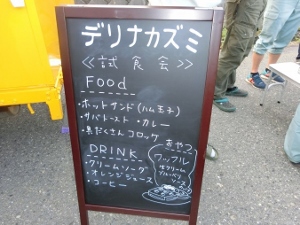 デリナカズミ
≪試食会≫
Food
・ホットサンド(ハム玉子)
・サバトースト ・カレー
・具だくさんコロッケ
DRINK
・クリームソーダ
・オレンジジュース
・コーヒー
おやつ
ワッフル
生クリーム
ブルーベリー
ソース